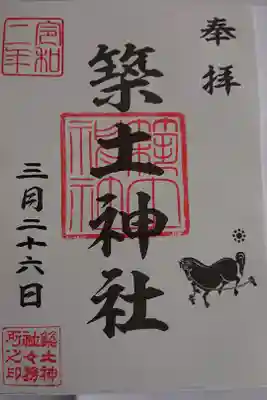 奉拝
築土神社
令和
二年
三月二十六日
築土神
社々務
所之印